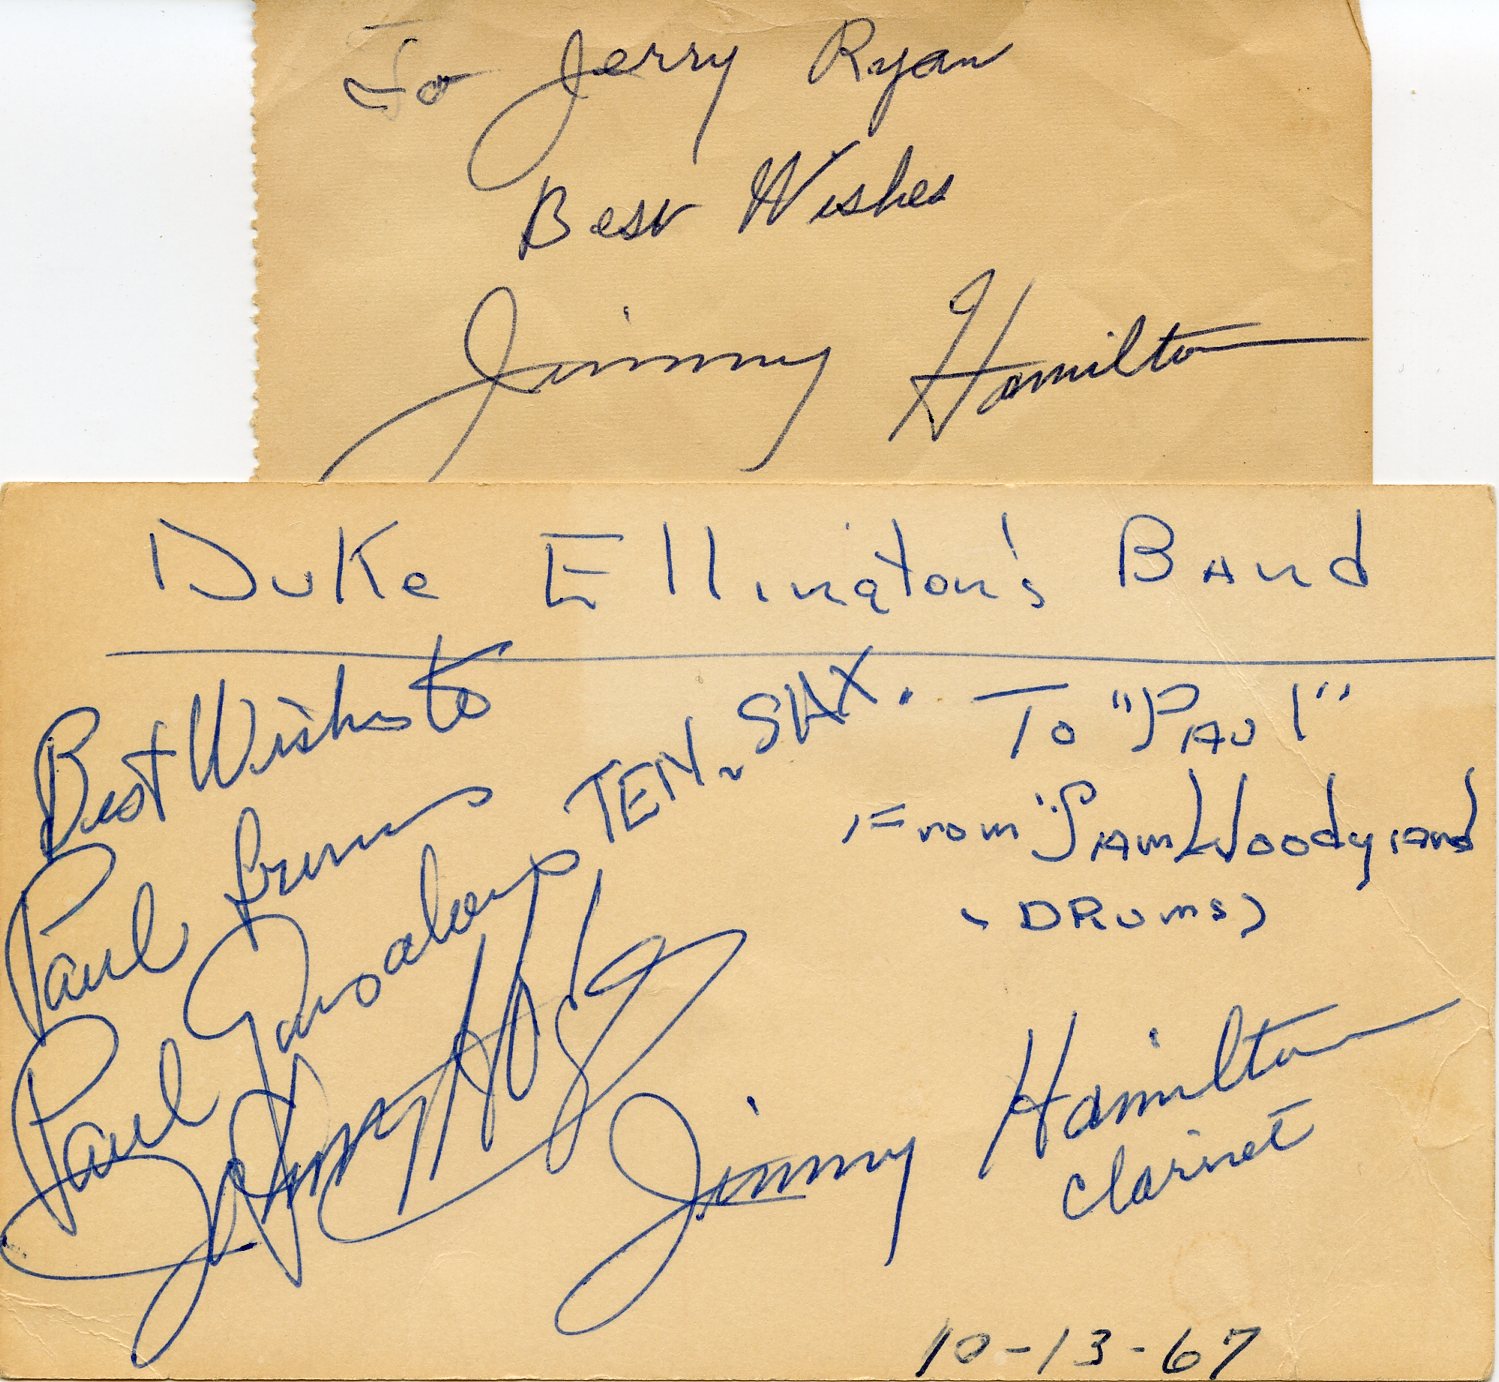 To Jerry Ryan
Best Wishes
Jimmy Hamilton
Duke Ellington's Band
Best Wishes to
Paul from
Paul Gonsalves TEN. SAX.
To "Paul"
From "Sam Woodyard
(DRums)
Johnny Hodges
Jimmy Hamilton
Clarinet
10-13-67